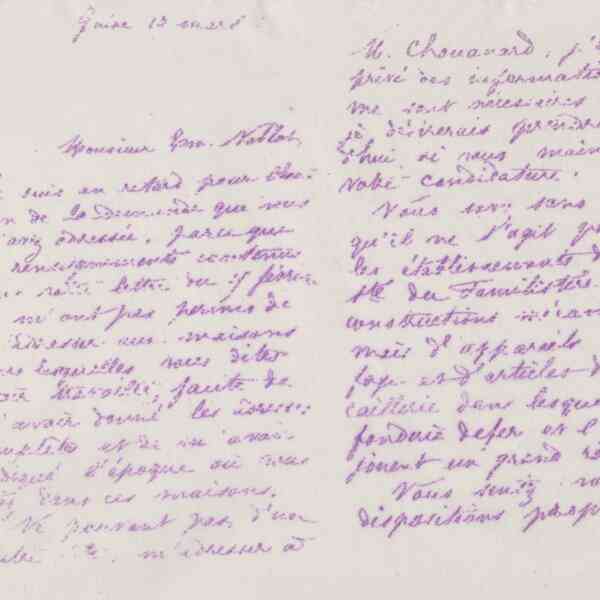 Guise 13 mars
Monsieur Em. Nollot
suis en retard pour
n de la demande que vous
avez adressée, parce que
renseignements contenus
votre lettre du
m'ont pas permis de
adresser aux maisons
lesquelles vous dites
avoir travaillé, faute de
avoir donné les adresses
et de m'avoir
l'époque où vous
dans ces maisons.
Ne pouvant pas d'un
m'adresser à
M. Chouanard, j'
privé des informat
me sont nécessaires
je désirerais
si vous main
votre candidature.
Vous savez sans
qu'il ne s'agit p
les établissements d
Sté du Familistère
constructions mécan
mais d'appareils
fage et d'articles d
caillerie dans lesque
fonderie de fer et l
jouent un grand rô
Vous
dispositions prop